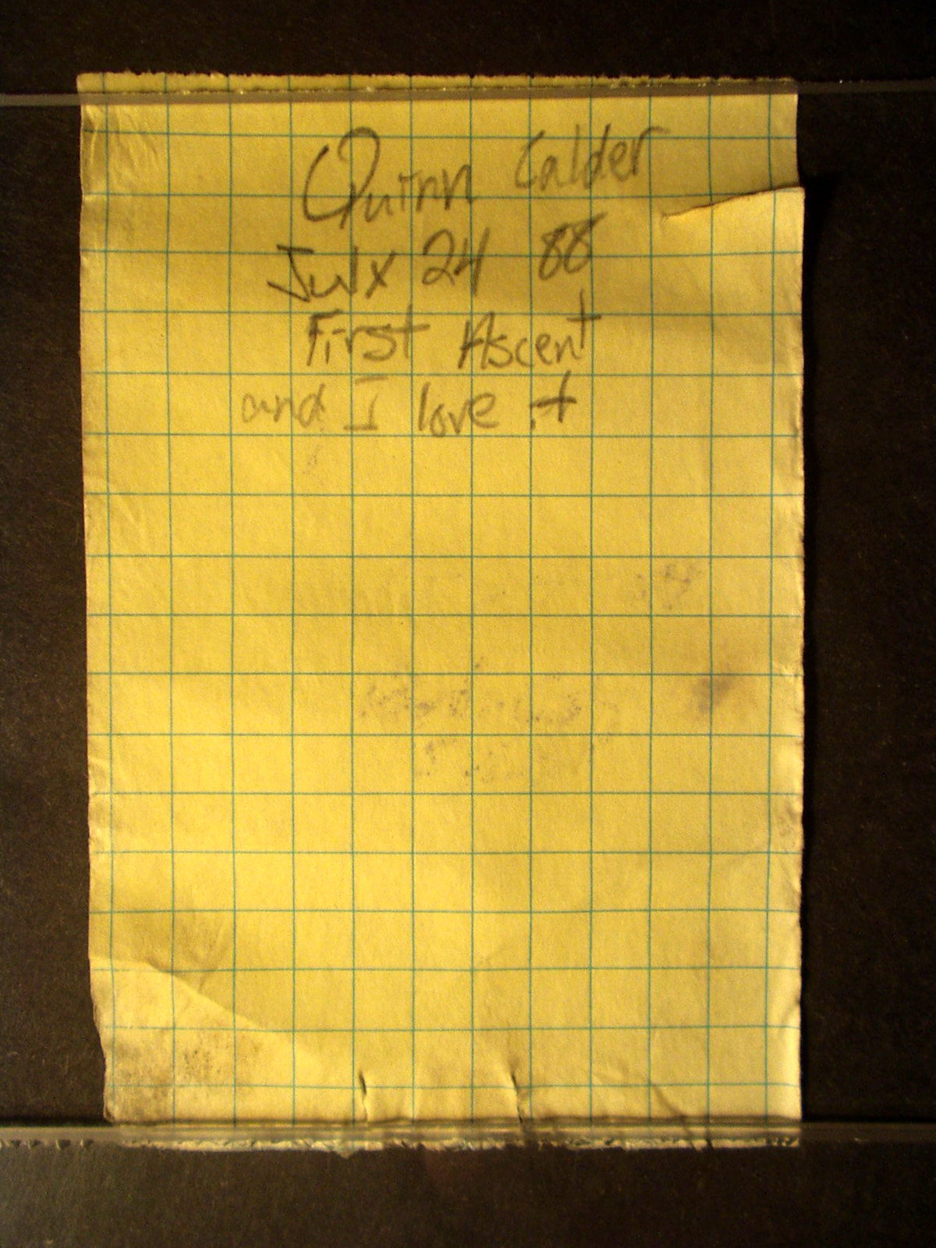 Quinn Calder
July 24 88
First Ascent
and I love it